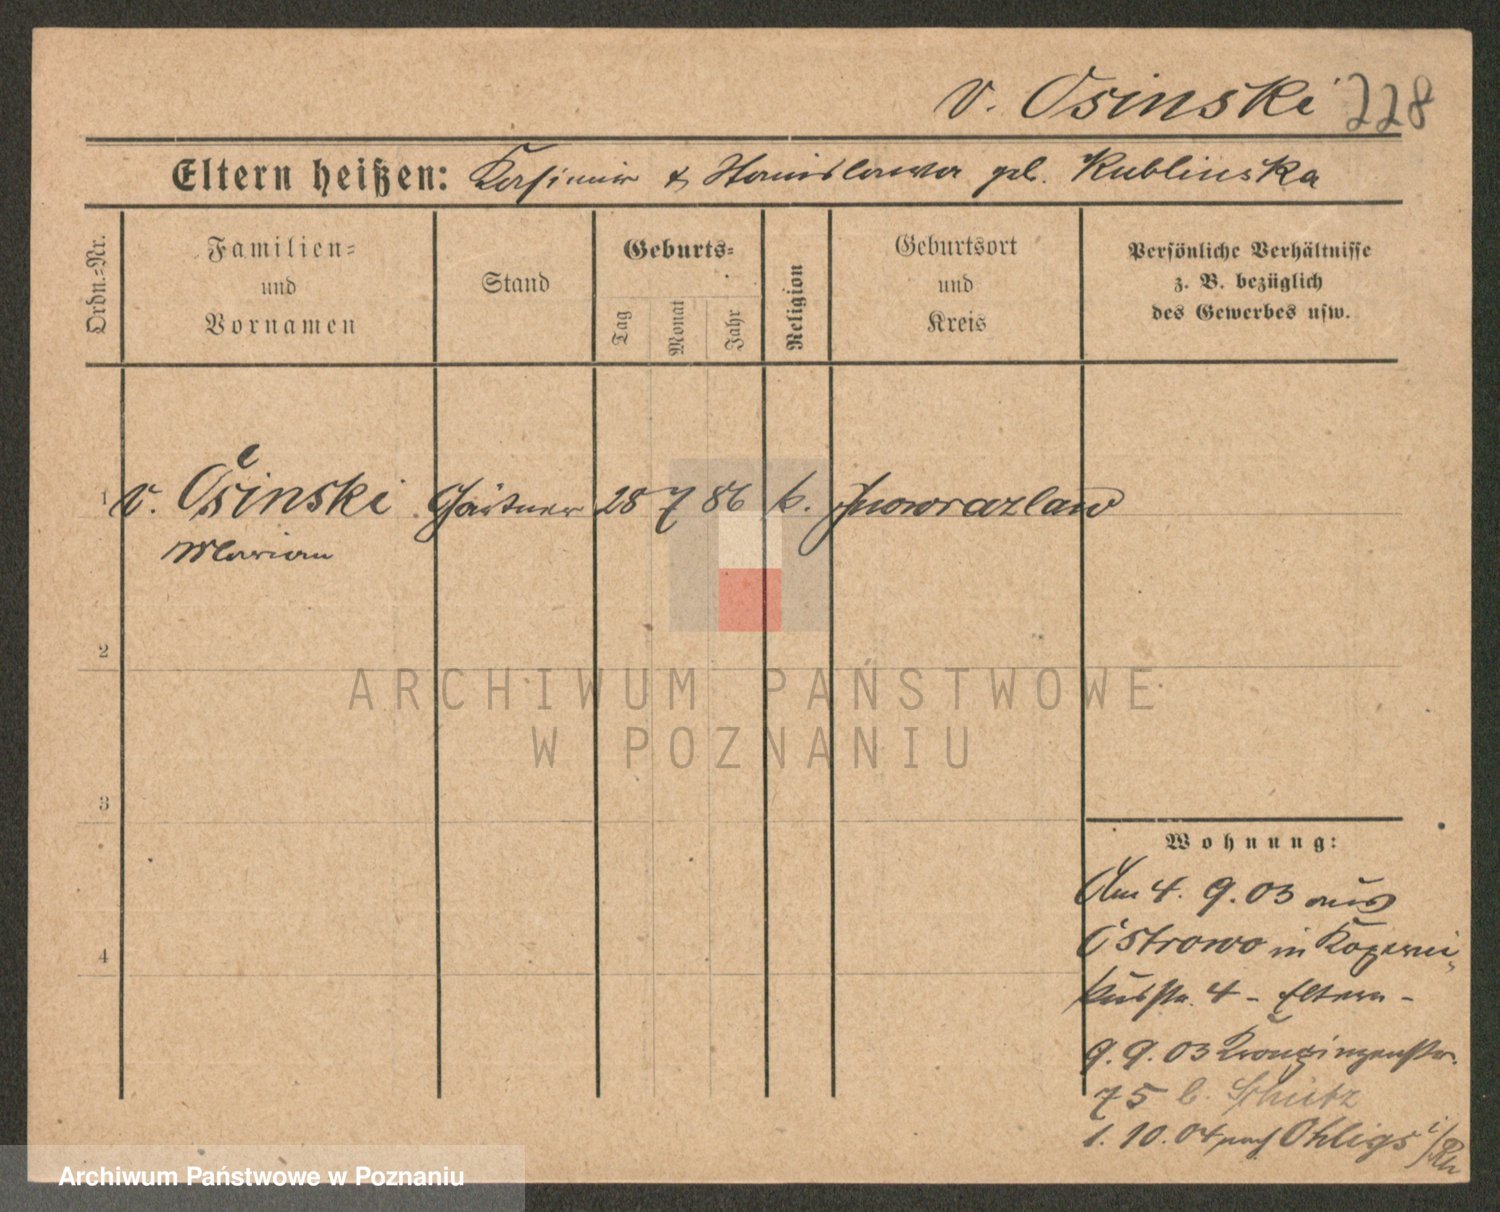 v. Osinski 228
Eltern heißen: Kasimir & Stanislawa geb. Kublinska
Ordn.=Nr.
Familien=
und
Vornamen
Stand
Geburts=
Tag
Monat
Jahr
Religion
Geburtsort
und
Kreis
Persönliche Verhältnisse
z. B. bezüglich
des Gewerbes usw.
1 v. Osinski Gärtner 28 7 86 k. Inowrazlaw
Marian
2
ARCHIWUM PAŃSTWOWE
W POZNANIU
3
4
Wohnung:
Am 4. 9. 03 aus
Ostrowo in Koperni-
kusstr. 4 - Eltern -
9. 9. 03 Kronprinzenstr.
75 b. Schütz
1. 10. 04 nach Ohligs i/Rh
Archiwum Państwowe w Poznaniu